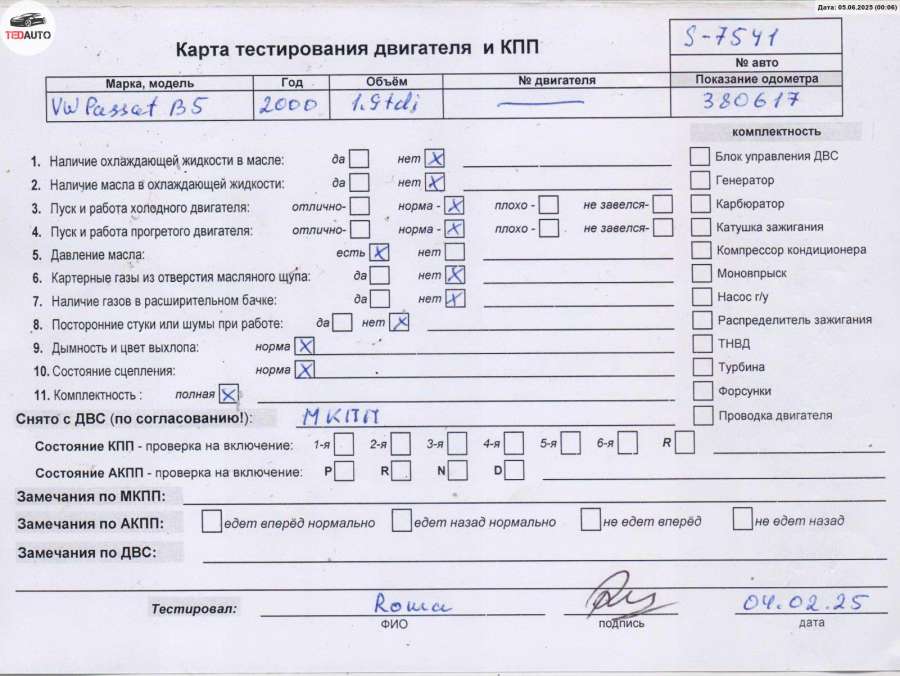 Дата: 05.06.2025 (00:06)
TEDAUTO
Карта тестирования двигателя и КПП
S-7541
№ авто
Марка, модель Год Объём № двигателя Показание одометра
VW Passat B5 2000 1.9tdi 380617
комплектность
1. Наличие охлаждающей жидкости в масле: да нет X
Блок управления ДВС
2. Наличие масла в охлаждающей жидкости: да нет X
Генератор
3. Пуск и работа холодного двигателя: отлично- норма - X плохо - не завелся-
Карбюратор
4. Пуск и работа прогретого двигателя: отлично- норма - X плохо - не завелся-
Катушка зажигания
5. Давление масла: есть X нет
Компрессор кондиционера
6. Картерные газы из отверстия масляного щупа: да нет X
Моновпрыск
7. Наличие газов в расширительном бачке: да нет X
Насос г/у
8. Посторонние стуки или шумы при работе: да нет X
Распределитель зажигания
9. Дымность и цвет выхлопа: норма X
ТНВД
10. Состояние сцепления: норма X
Турбина
11. Комплектность : полная X
Форсунки
Снято с ДВС (по согласованию!): МКПП
Проводка двигателя
Состояние КПП - проверка на включение: 1-я 2-я 3-я 4-я 5-я 6-я R
Состояние АКПП - проверка на включение: P R N D
Замечания по МКПП:
Замечания по АКПП: едет вперёд нормально едет назад нормально не едет вперёд не едет назад
Замечания по ДВС:
Тестировал: Roma 04.02.25
ФИО подпись дата